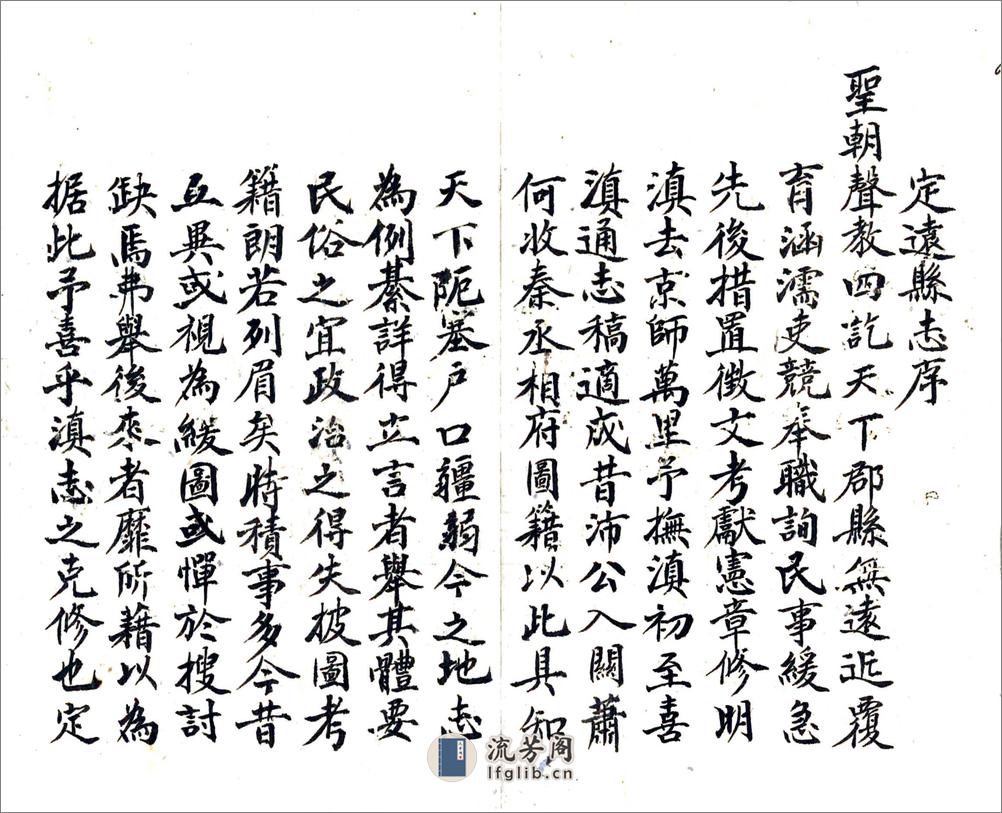 定遠縣志序
聖朝聲教四訖天下郡縣無遠近覆
育涵濡吏競奉職詢民事緩急
先後措置徴文考獻憲章修明
滇去京師萬里予撫滇初至喜
滇通志稿適成昔沛公入關蕭
何收秦丞相府圖籍以此具知
天下阨塞戶口疆弱今之地志
為例綦詳得立言者舉其體要
民俗之宜政治之得失披圖考
籍朗若列眉矣時積事多今昔
互異或視為緩圖或憚於搜討
缺焉弗舉後來者靡所藉以為
据此予喜乎滇志之克修也定
流芳阁
lfglib.cn